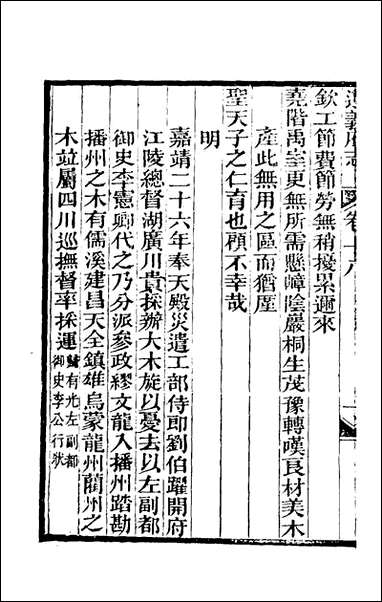 遵義府志 卷十八
欽工節費節勞無稍擾累邇來
堯階禹室更無所需懸嶂陰巖桐生茂豫轉嘆良材美木
產此無用之區而猶厪
聖天子之仁育也顧不幸哉
明
嘉靖二十六年奉天殿災遣工部侍郎劉伯躍開府
江陵總督湖廣川貴採辦大木旋以憂去以左副都
御史李憲卿代之乃分派參政繆文龍入播州踏勘
播州之木有儒溪建昌天全鎮雄烏蒙龍州藺州之
木竝屬四川巡撫督率採運歸有光左副都御史李公行狀